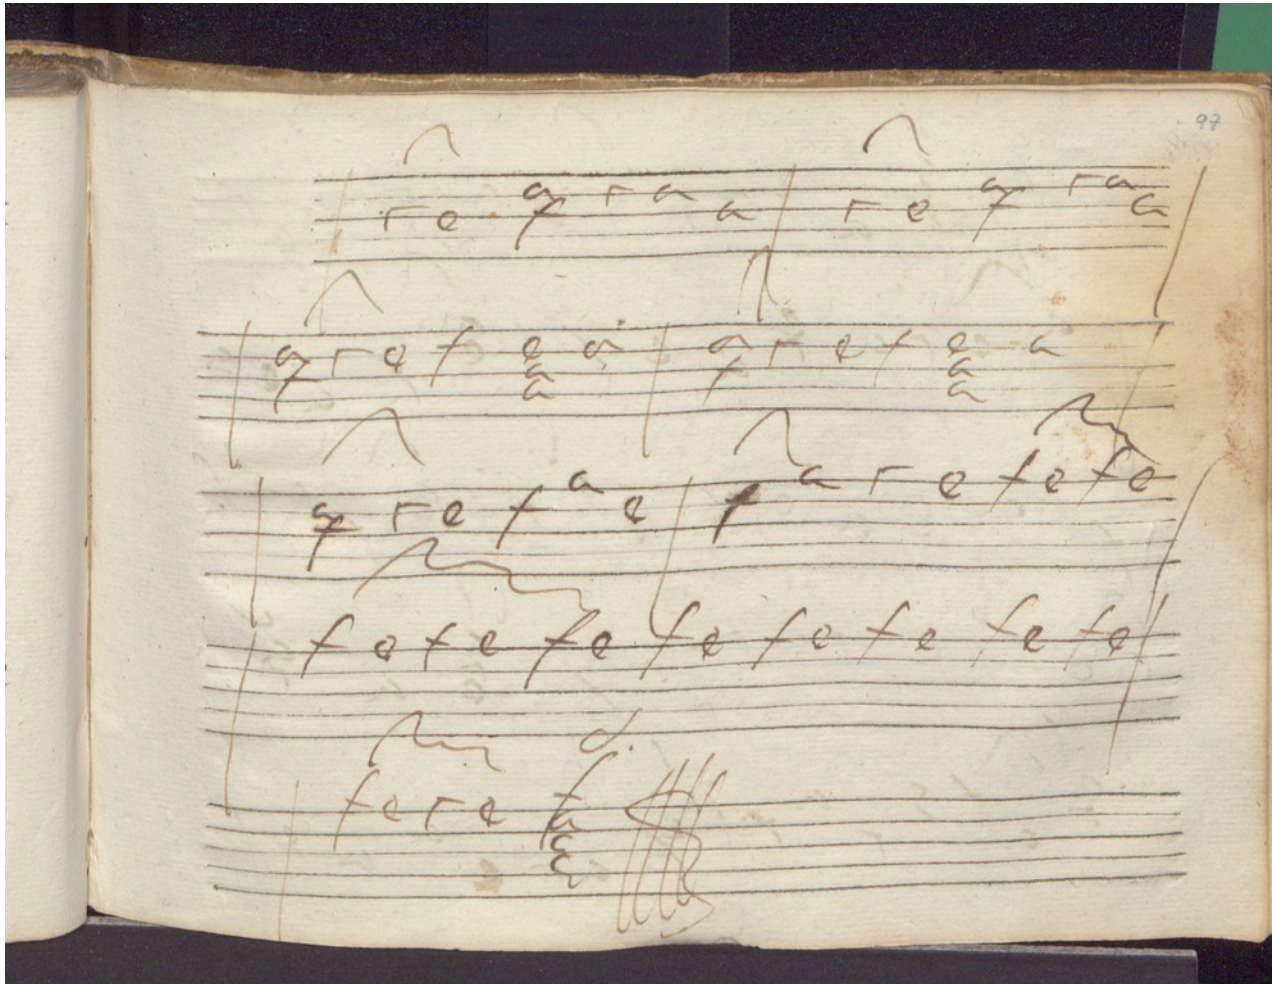 97
r e a f r a a r e a f r a a
a f r e f e a a a a f r e f e a a a
a f r e f a e f a r e f e f e
f e f e f e f e f e f e f e f e
f e r e f a a a